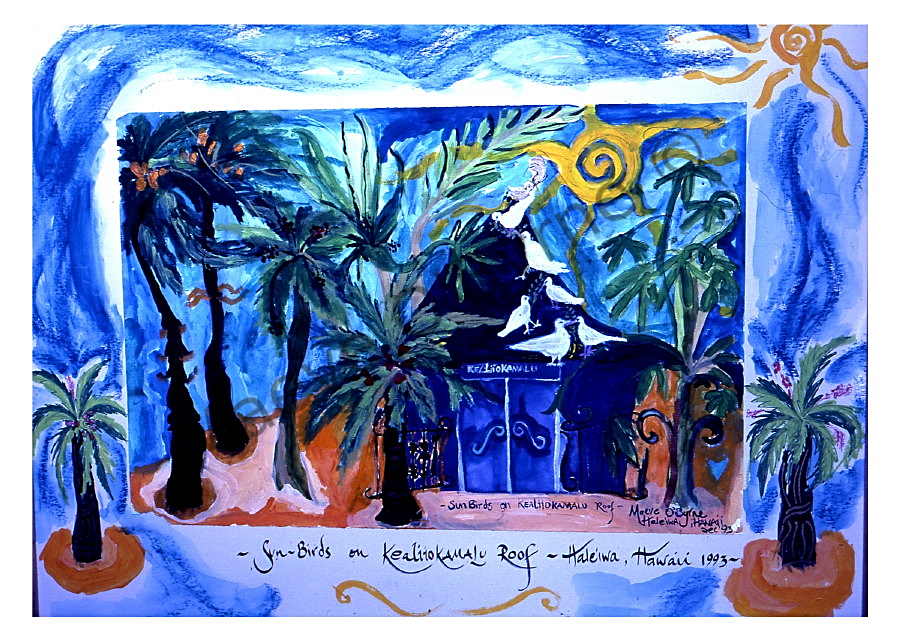 KEALIIOKAMALU
~ Sun Birds on KEALIIOKAMALU Roof ~
Maeve O'Byrne
Haleiwa, HAWAII
Dec 93
~ Sun-Birds on KealiiOKAMALU Roof ~ Hale'iwa, Hawaii 1993 ~